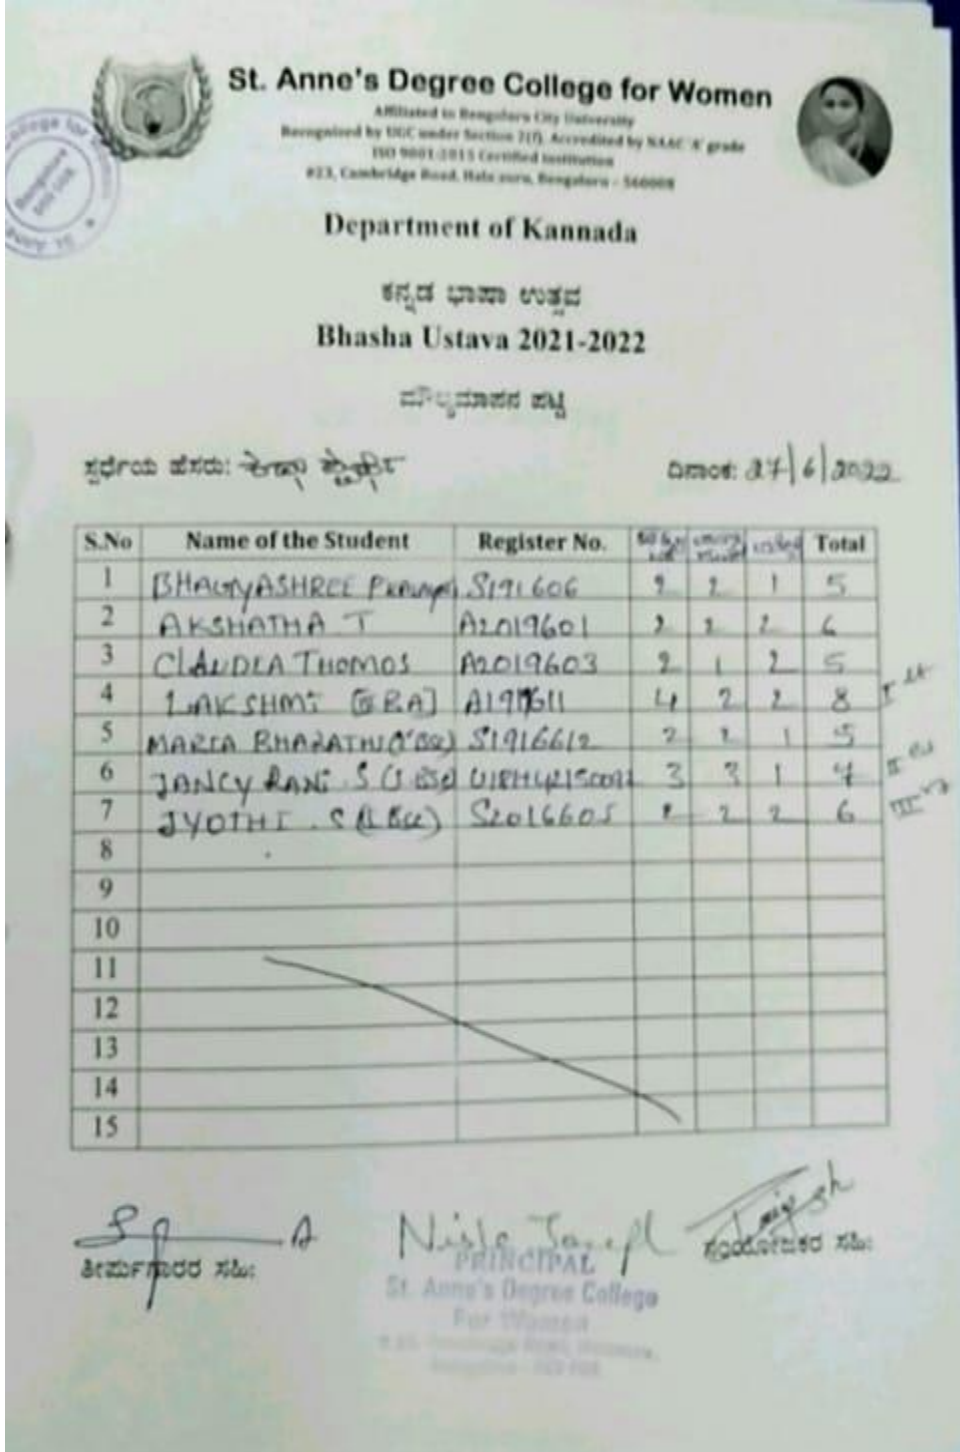 St. Anne's Degree College for Women
Affiliated to Bengaluru City University
Recognised by UGC under Section 2(f), Accredited by NAAC 'A' grade
ISO 9001:2015 Certified institution
#23, Cambridge Road, Halasuru, Bengaluru - 560008
Department of Kannada
ಕನ್ನಡ ಭಾಷಾ ಉತ್ಸವ
Bhasha Ustava 2021-2022
ಮೌಲ್ಯಮಾಪನ ಪಟ್ಟಿ
ಸ್ಪರ್ಧೆಯ ಹೆಸರು: ದಿನಾಂಕ: 27/6/2022
S.No Name of the Student Register No. Total
1 BHAGYASHREE S191606 2 2 1 5
2 AKSHATHA T A2019601 2 2 2 6
3 CLAUDIA THOMOS A2019603 2 1 2 5
4 LAKSHMI [BBA] A191611 4 2 2 8 I
5 MARIA BHARATHI S1916612 2 2 1 5
6 JANCY RANI S 3 3 1 7 II
7 JYOTHI . S S2016605 2 2 2 6 III
8
9
10
11
12
13
14
15
Nisha Joseph
ತೀರ್ಪುಗಾರರ ಸಹಿ: ಸಂಯೋಜಕರ ಸಹಿ:
PRINCIPAL
St. Anne's Degree College
For Women